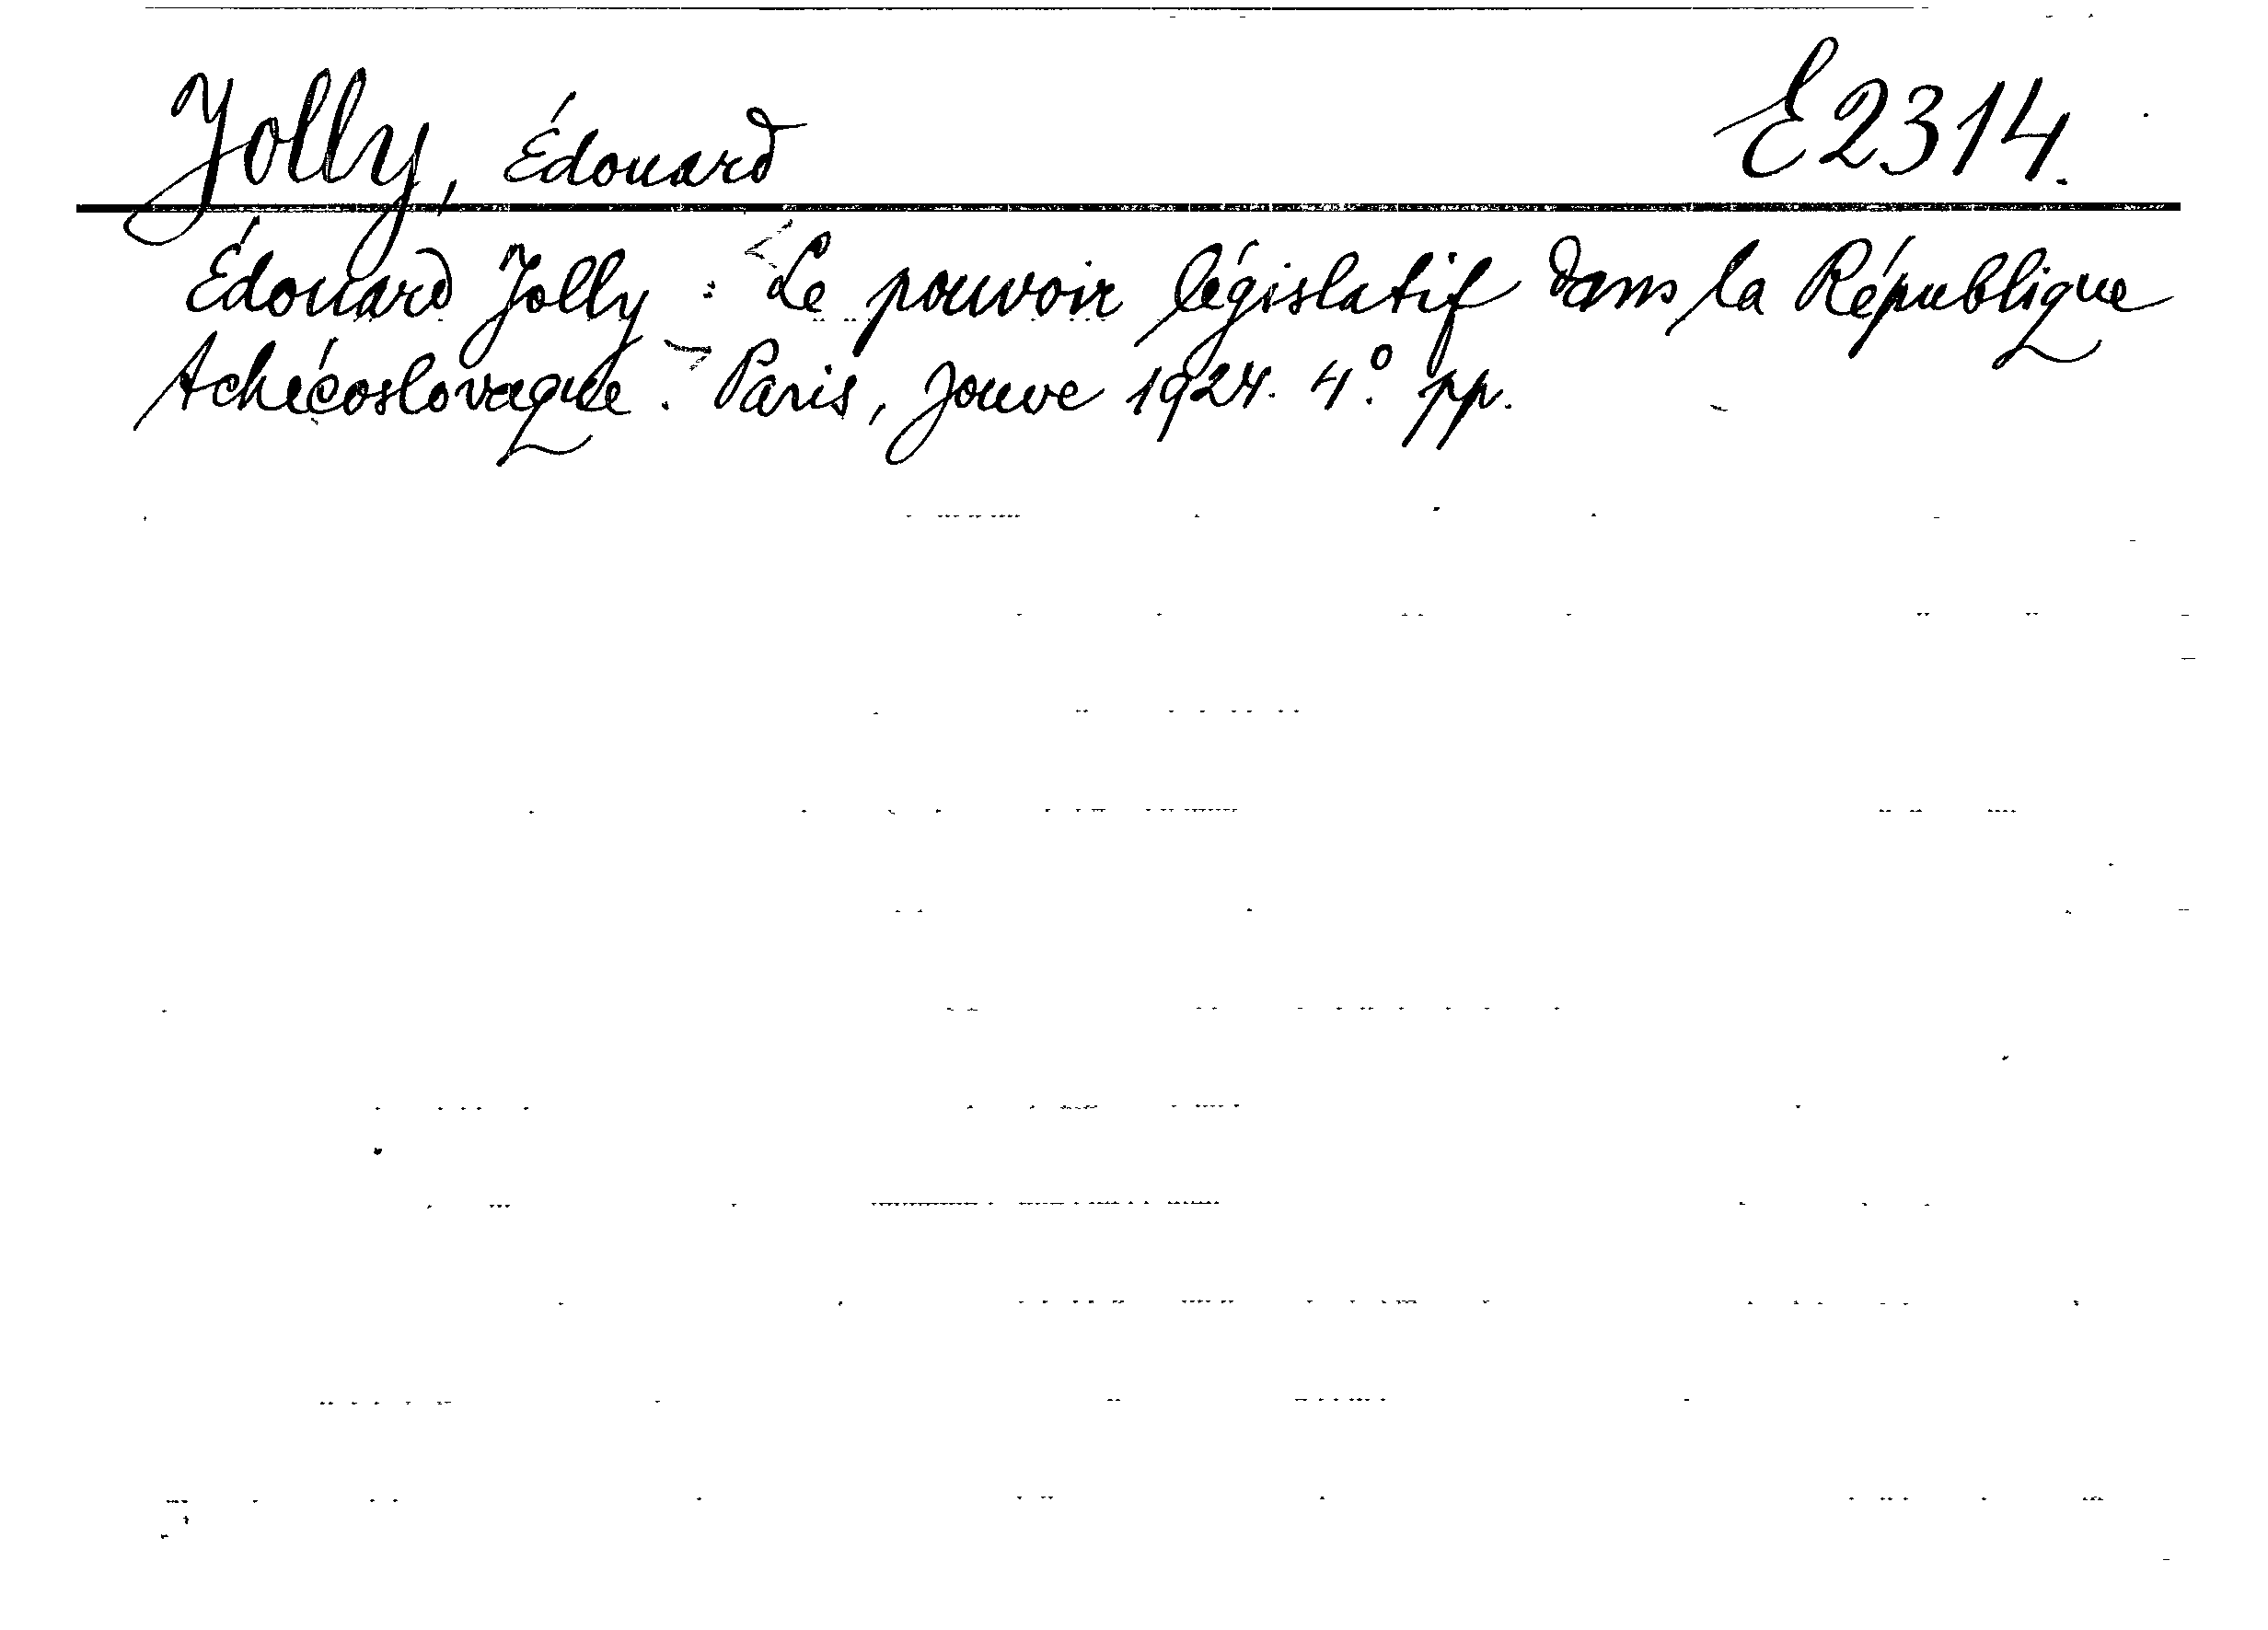 Jolly, Édouard E2314.
Édouard Jolly : <Le pouvoir législatif dans la République
tchécoslovaque.> Paris, Jouve 1924. 4.° pp.